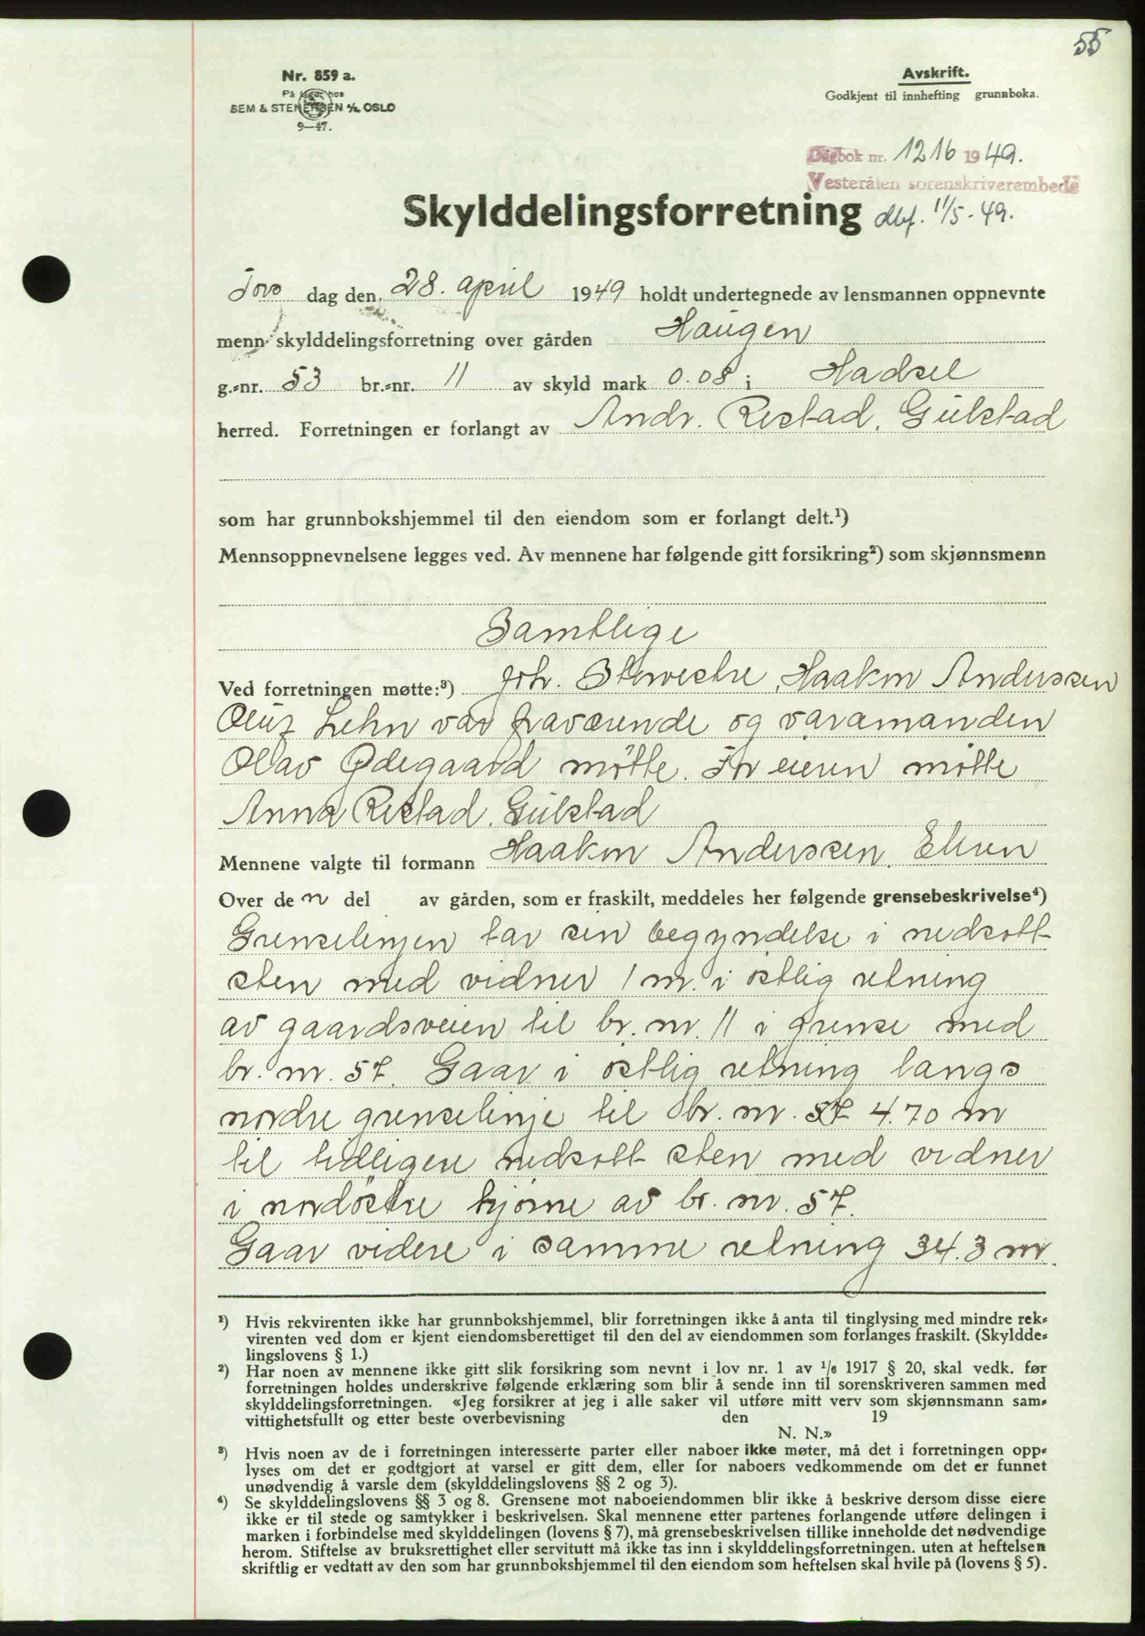 55
Nr. 859 a.
På lager hos
SEM & STENERSEN A/S OSLO
9—47.
Avskrift.
Godkjent til innhefting grunnboka.
Dagbok nr. 1216 1949.
Vesterålen sorenskriverembede
Skylddelingsforretning dbf. 11/5-49.
Tors dag den 28. april 1949 holdt undertegnede av lensmannen oppnevnte
menn skylddelingsforretning over gården Haugen
g.-nr. 53 br.-nr. 11 av skyld mark 0.08 i Hadsel
herred. Forretningen er forlangt av Andr. Restad, Gulstad
som har grunnbokshjemmel til den eiendom som er forlangt delt.¹)
Mennsoppnevnelsene legges ved. Av mennene har følgende gitt forsikring²) som skjønnsmenn
Samtlige
Ved forretningen møtte:³) Joh. Haakon Anderssen
Lehn var fraværende og varamanden
Olav Ødegaard møtte. For eieren møtte
Anna Restad, Gulstad
Mennene valgte til formann Haakon Anderssen, Elven
Over de n del av gården, som er fraskilt, meddeles her følgende grensebeskrivelse⁴)
Grenselinjen tar sin begyndelse i nedsatt
sten med vidner 1 m. i østlig retning
av gaardsveien til br. nr. 11 i grense med
br. nr. 57. Gaar i østlig retning langs
nordre grenselinje til br. nr. 57 4.70 m
til tidligere nedsatt sten med vidner
i nordøstre hjørne av br. nr. 57.
Gaar videre i samme retning 34.3 m.
¹) Hvis rekvirenten ikke har grunnbokshjemmel, blir forretningen ikke å anta til tinglysing med mindre rek-
virenten ved dom er kjent eiendomsberettiget til den del av eiendommen som forlanges fraskilt. (Skyldde-
lingslovens § 1.)
²) Har noen av mennene ikke gitt slik forsikring som nevnt i lov nr. 1 av 1/6 1917 § 20, skal vedk. før
forretningen holdes underskrive følgende erklæring som blir å sende inn til sorenskriveren sammen med
skylddelingsforretningen. «Jeg forsikrer at jeg i alle saker vil utføre mitt verv som skjønnsmann sam-
vittighetsfullt og etter beste overbevisning den 19
N. N.»
³) Hvis noen av de i forretningen interesserte parter eller naboer ikke møter, må det i forretningen opp-
lyses om det er godtgjort at varsel er gitt dem, eller for naboers vedkommende om det er funnet
unødvendig å varsle dem (skylddelingslovens §§ 2 og 3).
⁴) Se skylddelingslovens §§ 3 og 8. Grensene mot naboeiendommen blir ikke å beskrive dersom disse eiere
ikke er til stede og samtykker i beskrivelsen. Skal mennene etter partenes forlangende utføre delingen i
marken i forbindelse med skylddelingen (lovens § 7), må grensebeskrivelsen tillike inneholde det nødvendige
herom. Stiftelse av bruksrettighet eller servitutt må ikke tas inn i skylddelingsforretningen. uten at heftelsen
skriftlig er vedtatt av den som har grunnbokshjemmel til den eiendom som heftelsen skal hvile på (lovens § 5).